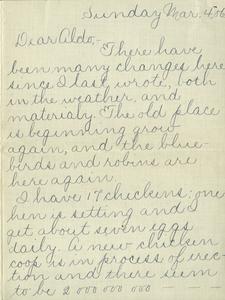 Sunday Mar. 4, '06
Dear Aldo,-
There have
been many changes here
since I last wrote, both
in the weather, and
materialy. The old place
is beginning grow
again, and the blue-
birds and robins are
here again.
I have 17 chickens; one
hen is setting and I
get about seven eggs
daily. A new chicken
coop is in process of erec-
tion and there seem
to be 2 000 000 000